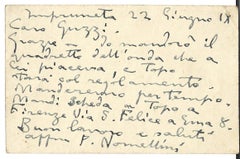 Impruneta 22 Giugno IX
Caro Guzzi.
Grazie — Io manderò il
quadretto dell'onda che a
Lei piaceva e topo.
Farà col regolamento.
Manderemo per tempo.
Mandi scheda a Topo a
Firenze Via S. Felice a Ema 8.
Buon lavoro e saluti
affmo P. Nomellini